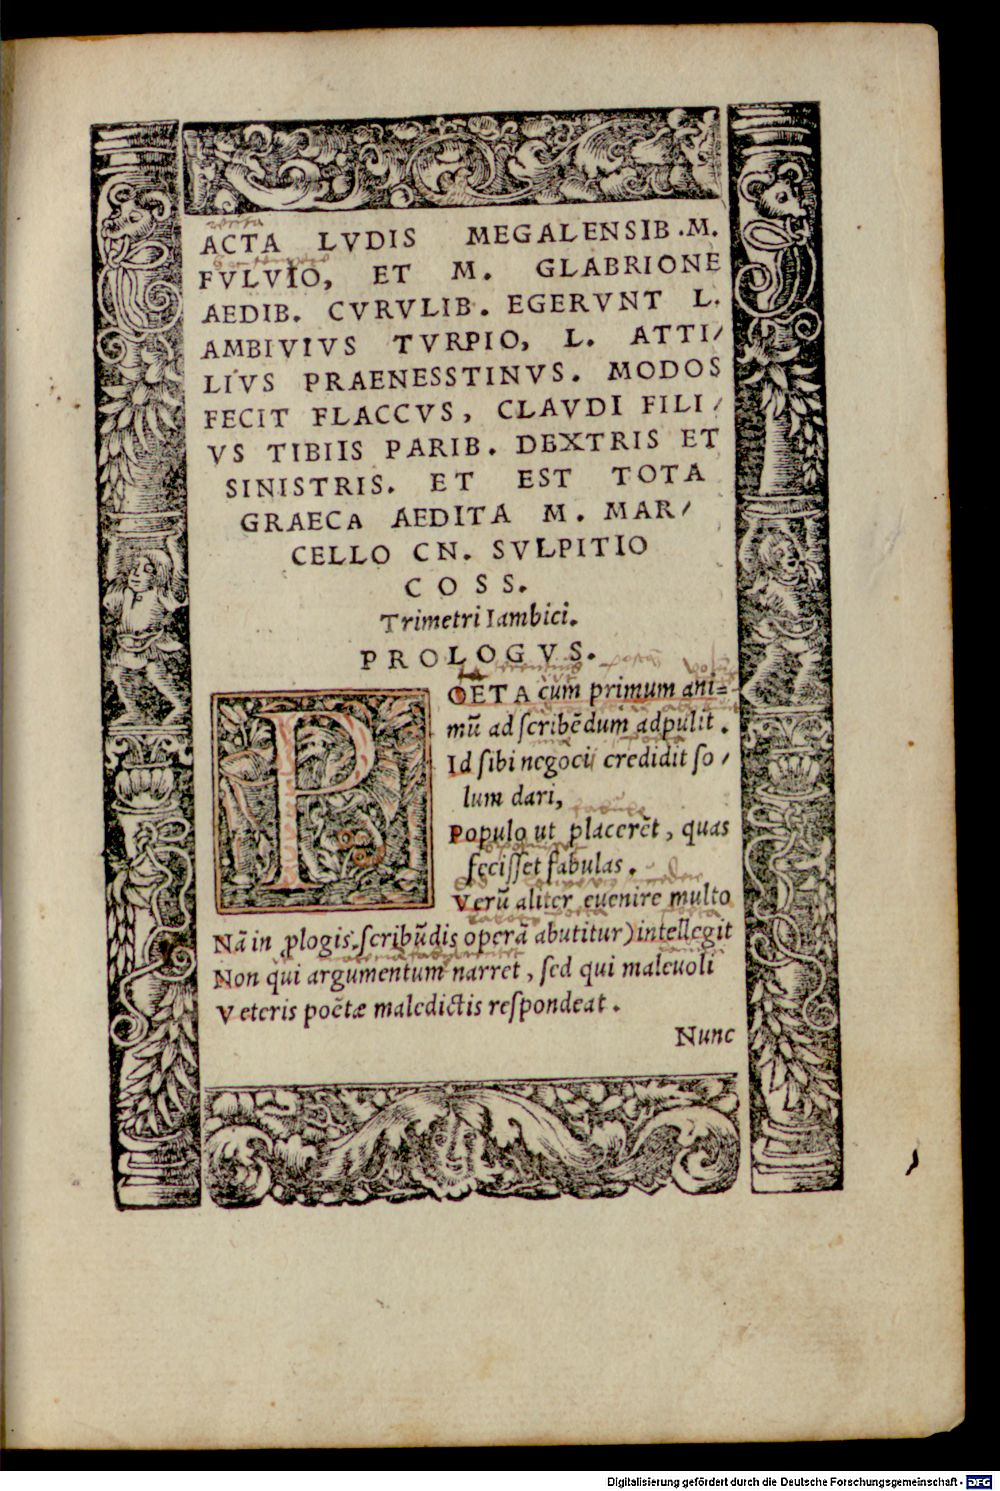 ACTA LVDIS MEGALENSIB.M.
FVLVIO, ET M. GLABRIONE
AEDIB. CVRVLIB. EGERVNT L.
AMBIVIVS TVRPIO, L. ATTI/
LIVS PRAENESSTINVS. MODOS
FECIT FLACCVS, CLAVDI FILI/
VS TIBIIS PARIB. DEXTRIS ET
SINISTRIS. ET EST TOTA
GRAECA AEDITA M. MAR/
CELLO CN. SVLPITIO
COSS.
Trimetri Iambici.
PROLOGVS.
OETA cum primum ani=
mũ ad ſcribẽdum adpulit.
Id ſibi negoci credidit ſo/
lum dari,
Populo ut placerẽt, quas
feciſſet fabulas.
Verũ aliter euenire multo
intellegit
Nã in ꝓlogis ſcribũdis operã abutitur)
Non qui argumentum narret, ſed qui maleuoli
Veteris poẽtæ maledictis reſpondeat.
Nunc
Digitalisierung gefördert durch die Deutsche Forschungsgemeinschaft - DFG